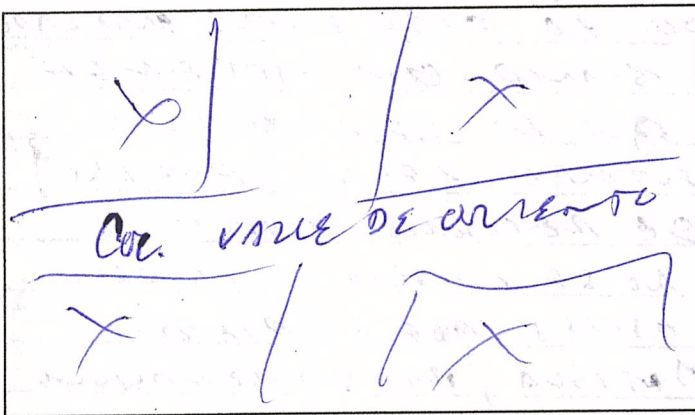 X X
Col. VALLE DE ORIENTE
X X